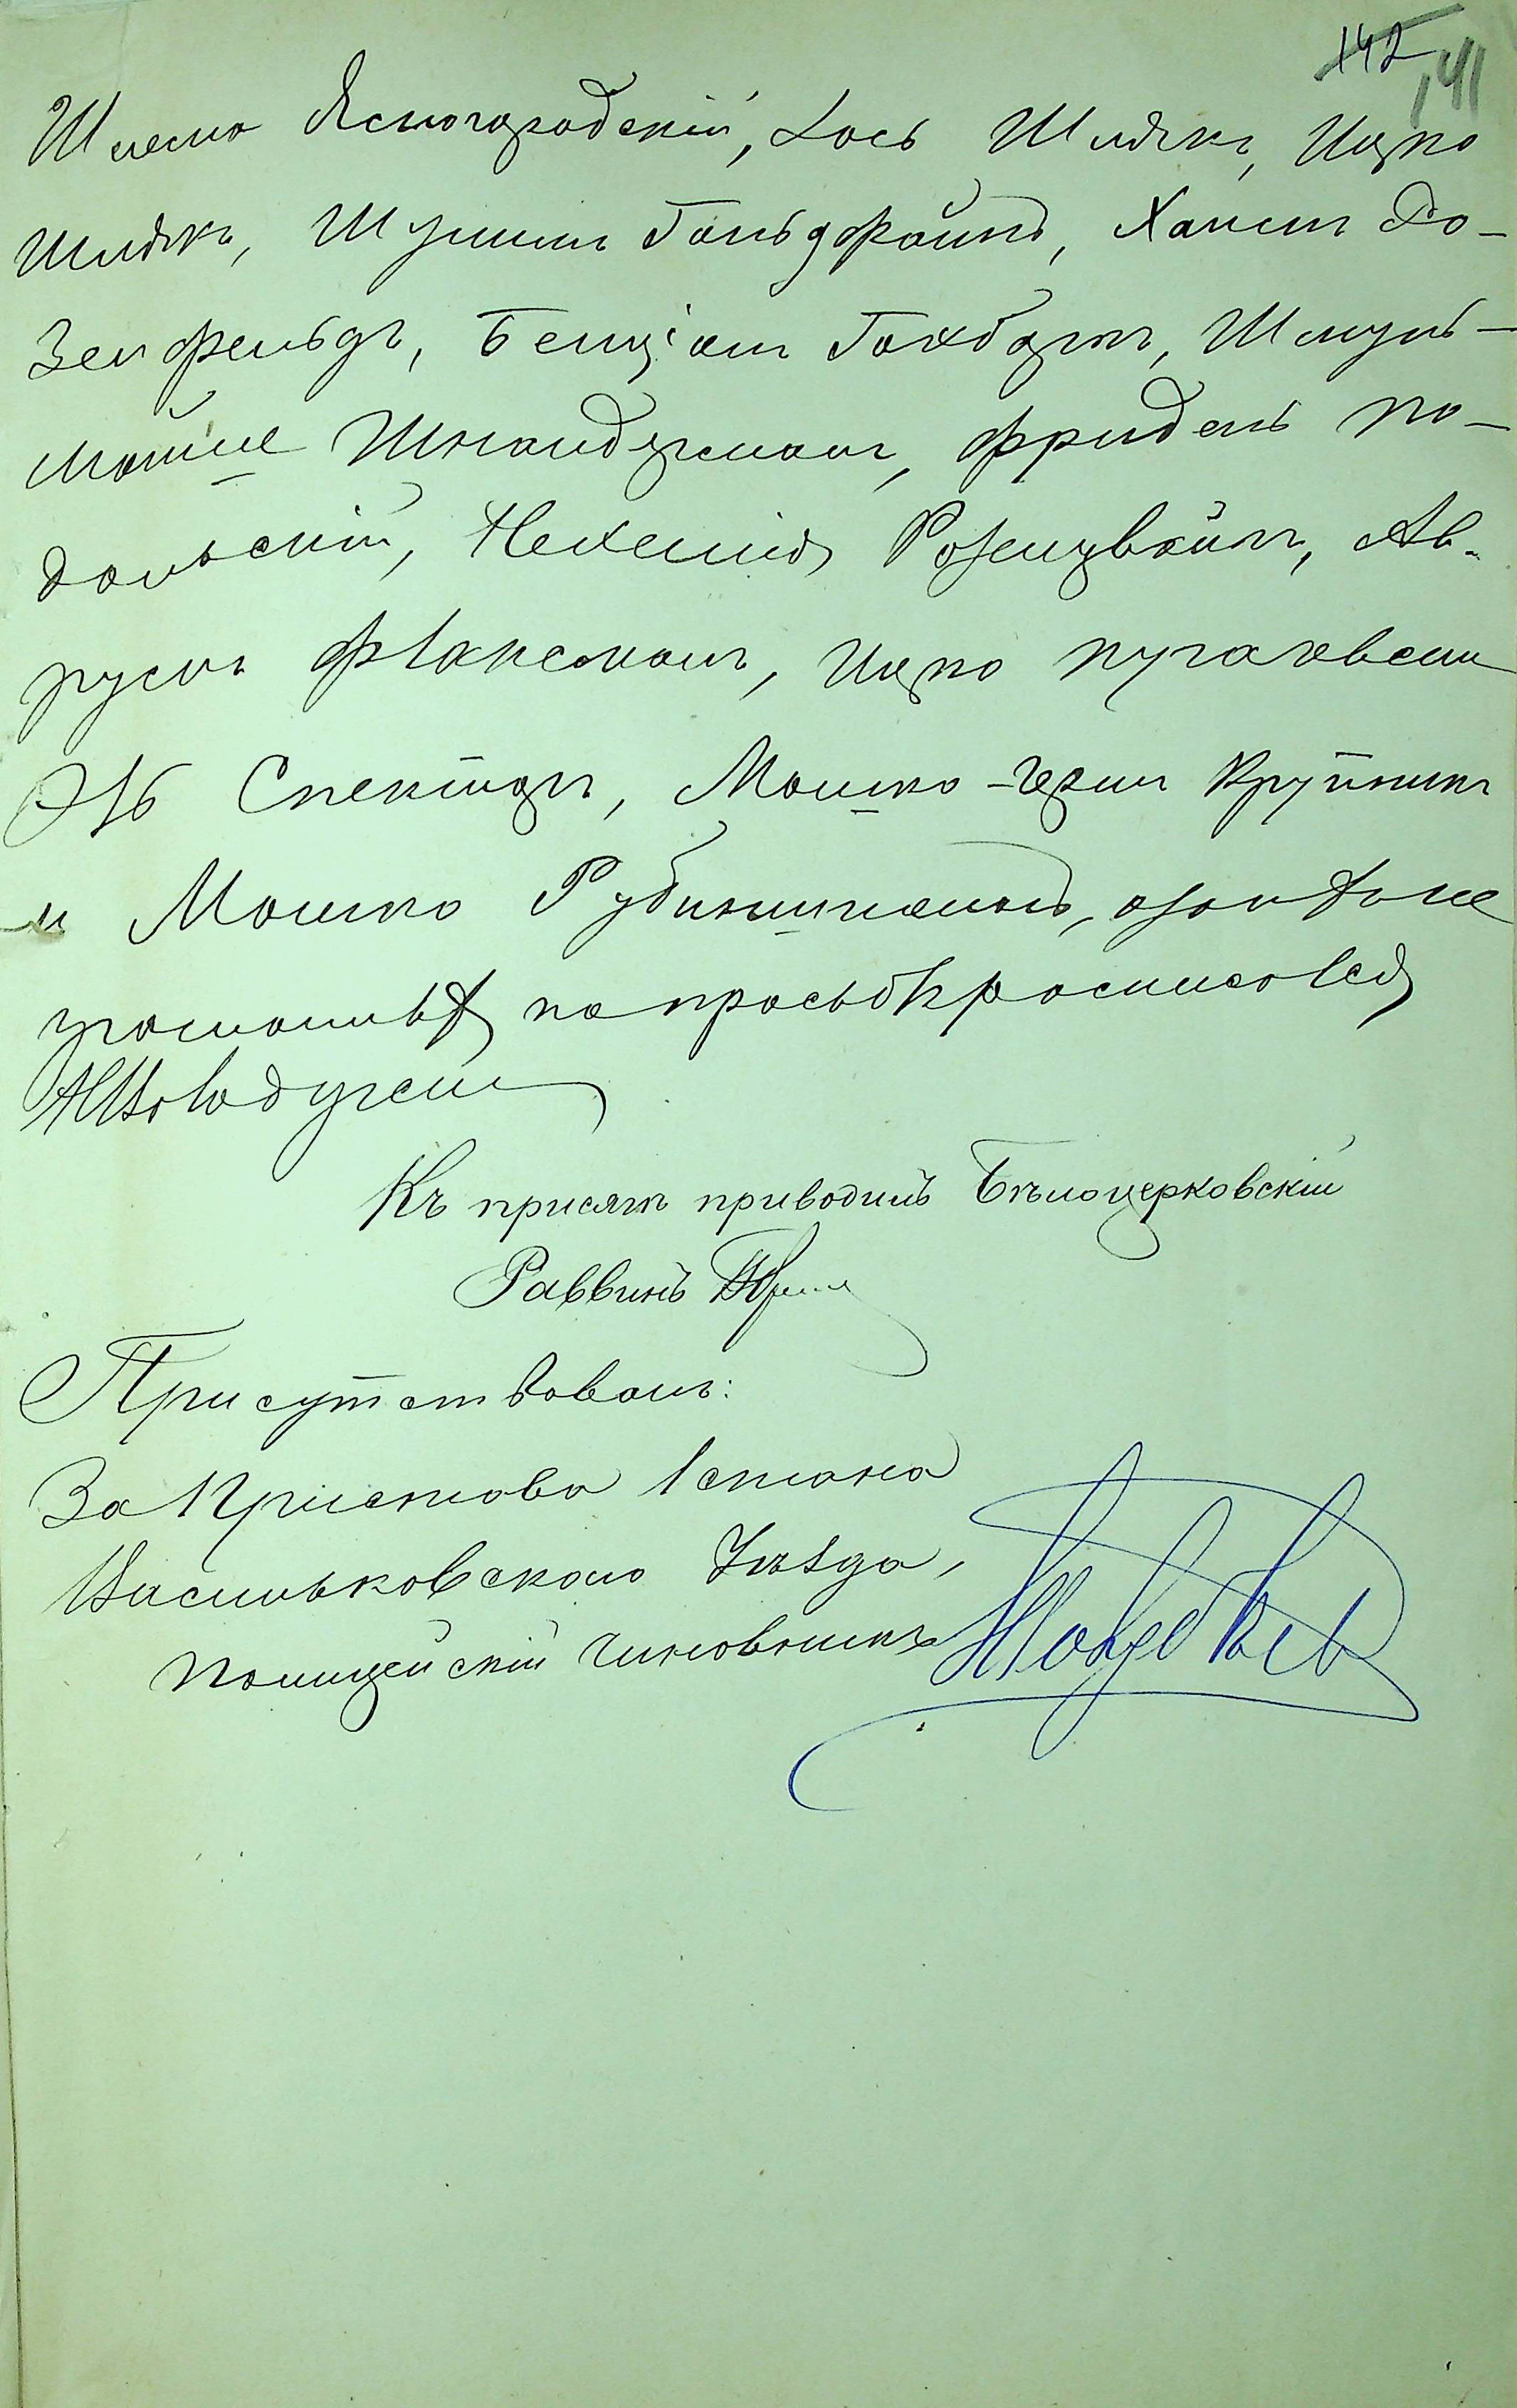 142 141
Шлема Ясногородскій, Іось Шлякъ, Ицко
Шлякъ, Шулимъ Гольдфайнъ, Хаимъ Ро-
зенфельдъ, Бенціонъ Гохбергъ, Шмуль-
Мойше Шнайдерманъ, Фридель По-
дольскій, Нехемія Розенцвайгъ, Ав-
румъ Фуксманъ, Ицко Пугачевскій
Спекторъ, Мошко-Герш Крупникъ
и Мошко Рубинштейнъ, а за нихъ не
грамотныхъ по просьбѣ росписался
Къ присягѣ приводилъ Бѣлоцерковскій
Раввинъ
Присутствовалъ:
За Пристава 1 стана
Васильковскаго Уѣзда,
Полицейскій чиновникъ